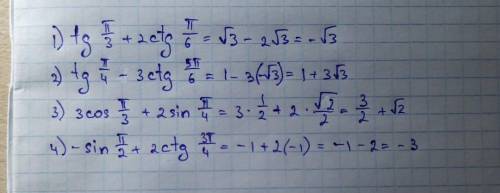 1) tg π/3 + 2ctg π/6 = √3 - 2√3 = -√3
2) tg π/4 - 3ctg 5π/6 = 1 - 3(-√3) = 1 + 3√3
3) 3cos π/3 + 2sin π/4 = 3 · 1/2 + 2 · √2/2 = 3/2 + √2
4) - sin π/2 + 2ctg 3π/4 = -1 + 2(-1) = -1 - 2 = -3